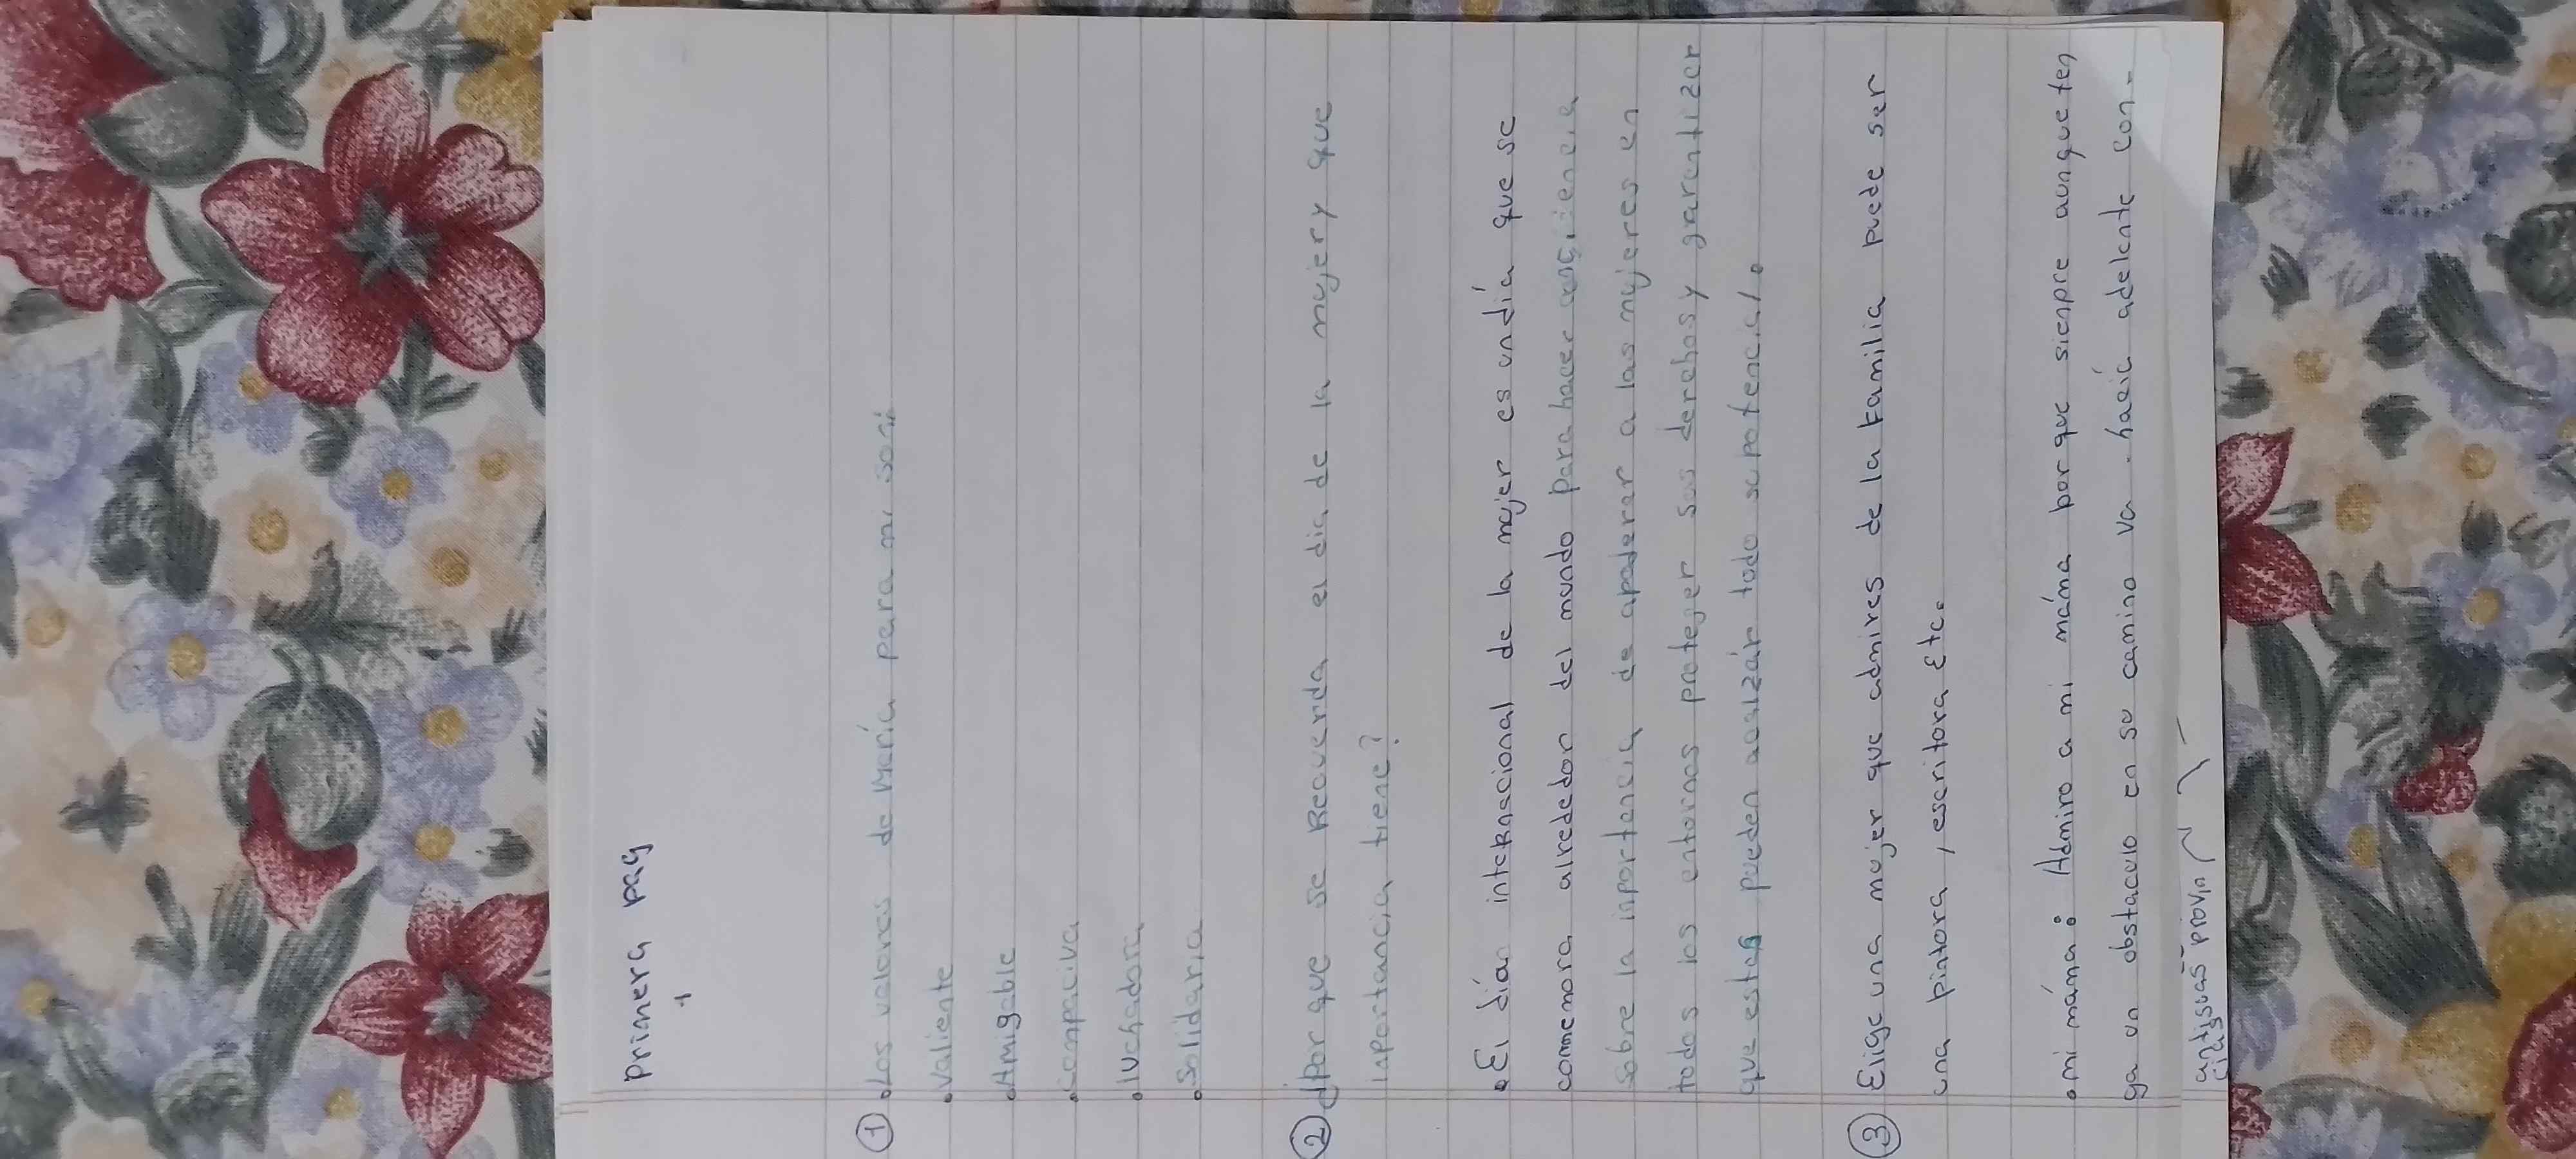 Primera pag
1
① • Los valores de María para mi son:
• valiente
• Amigable
• compaciva
• luchadora
• solidaria
② ¿Por que se Recuerda el dia de la mujer y que
inportancia tiene?
• El día internacional de la mujer es un día que se
conmemora alrededor del mundo para hacer
sobre la inportancia de apoderar a las mujeres en
todos los entornos proteger sus derechos y garantizar
que estas pueden acalzár todo su potencial.
③ Elige una mujer que admires de la familia puede ser
una pintora, escritora Etc.
• mi máma: Admiro a mi máma por que siempre aunque ten
ga un obstaculo en su camino va hacía adelante con-
antiguas provin
cias